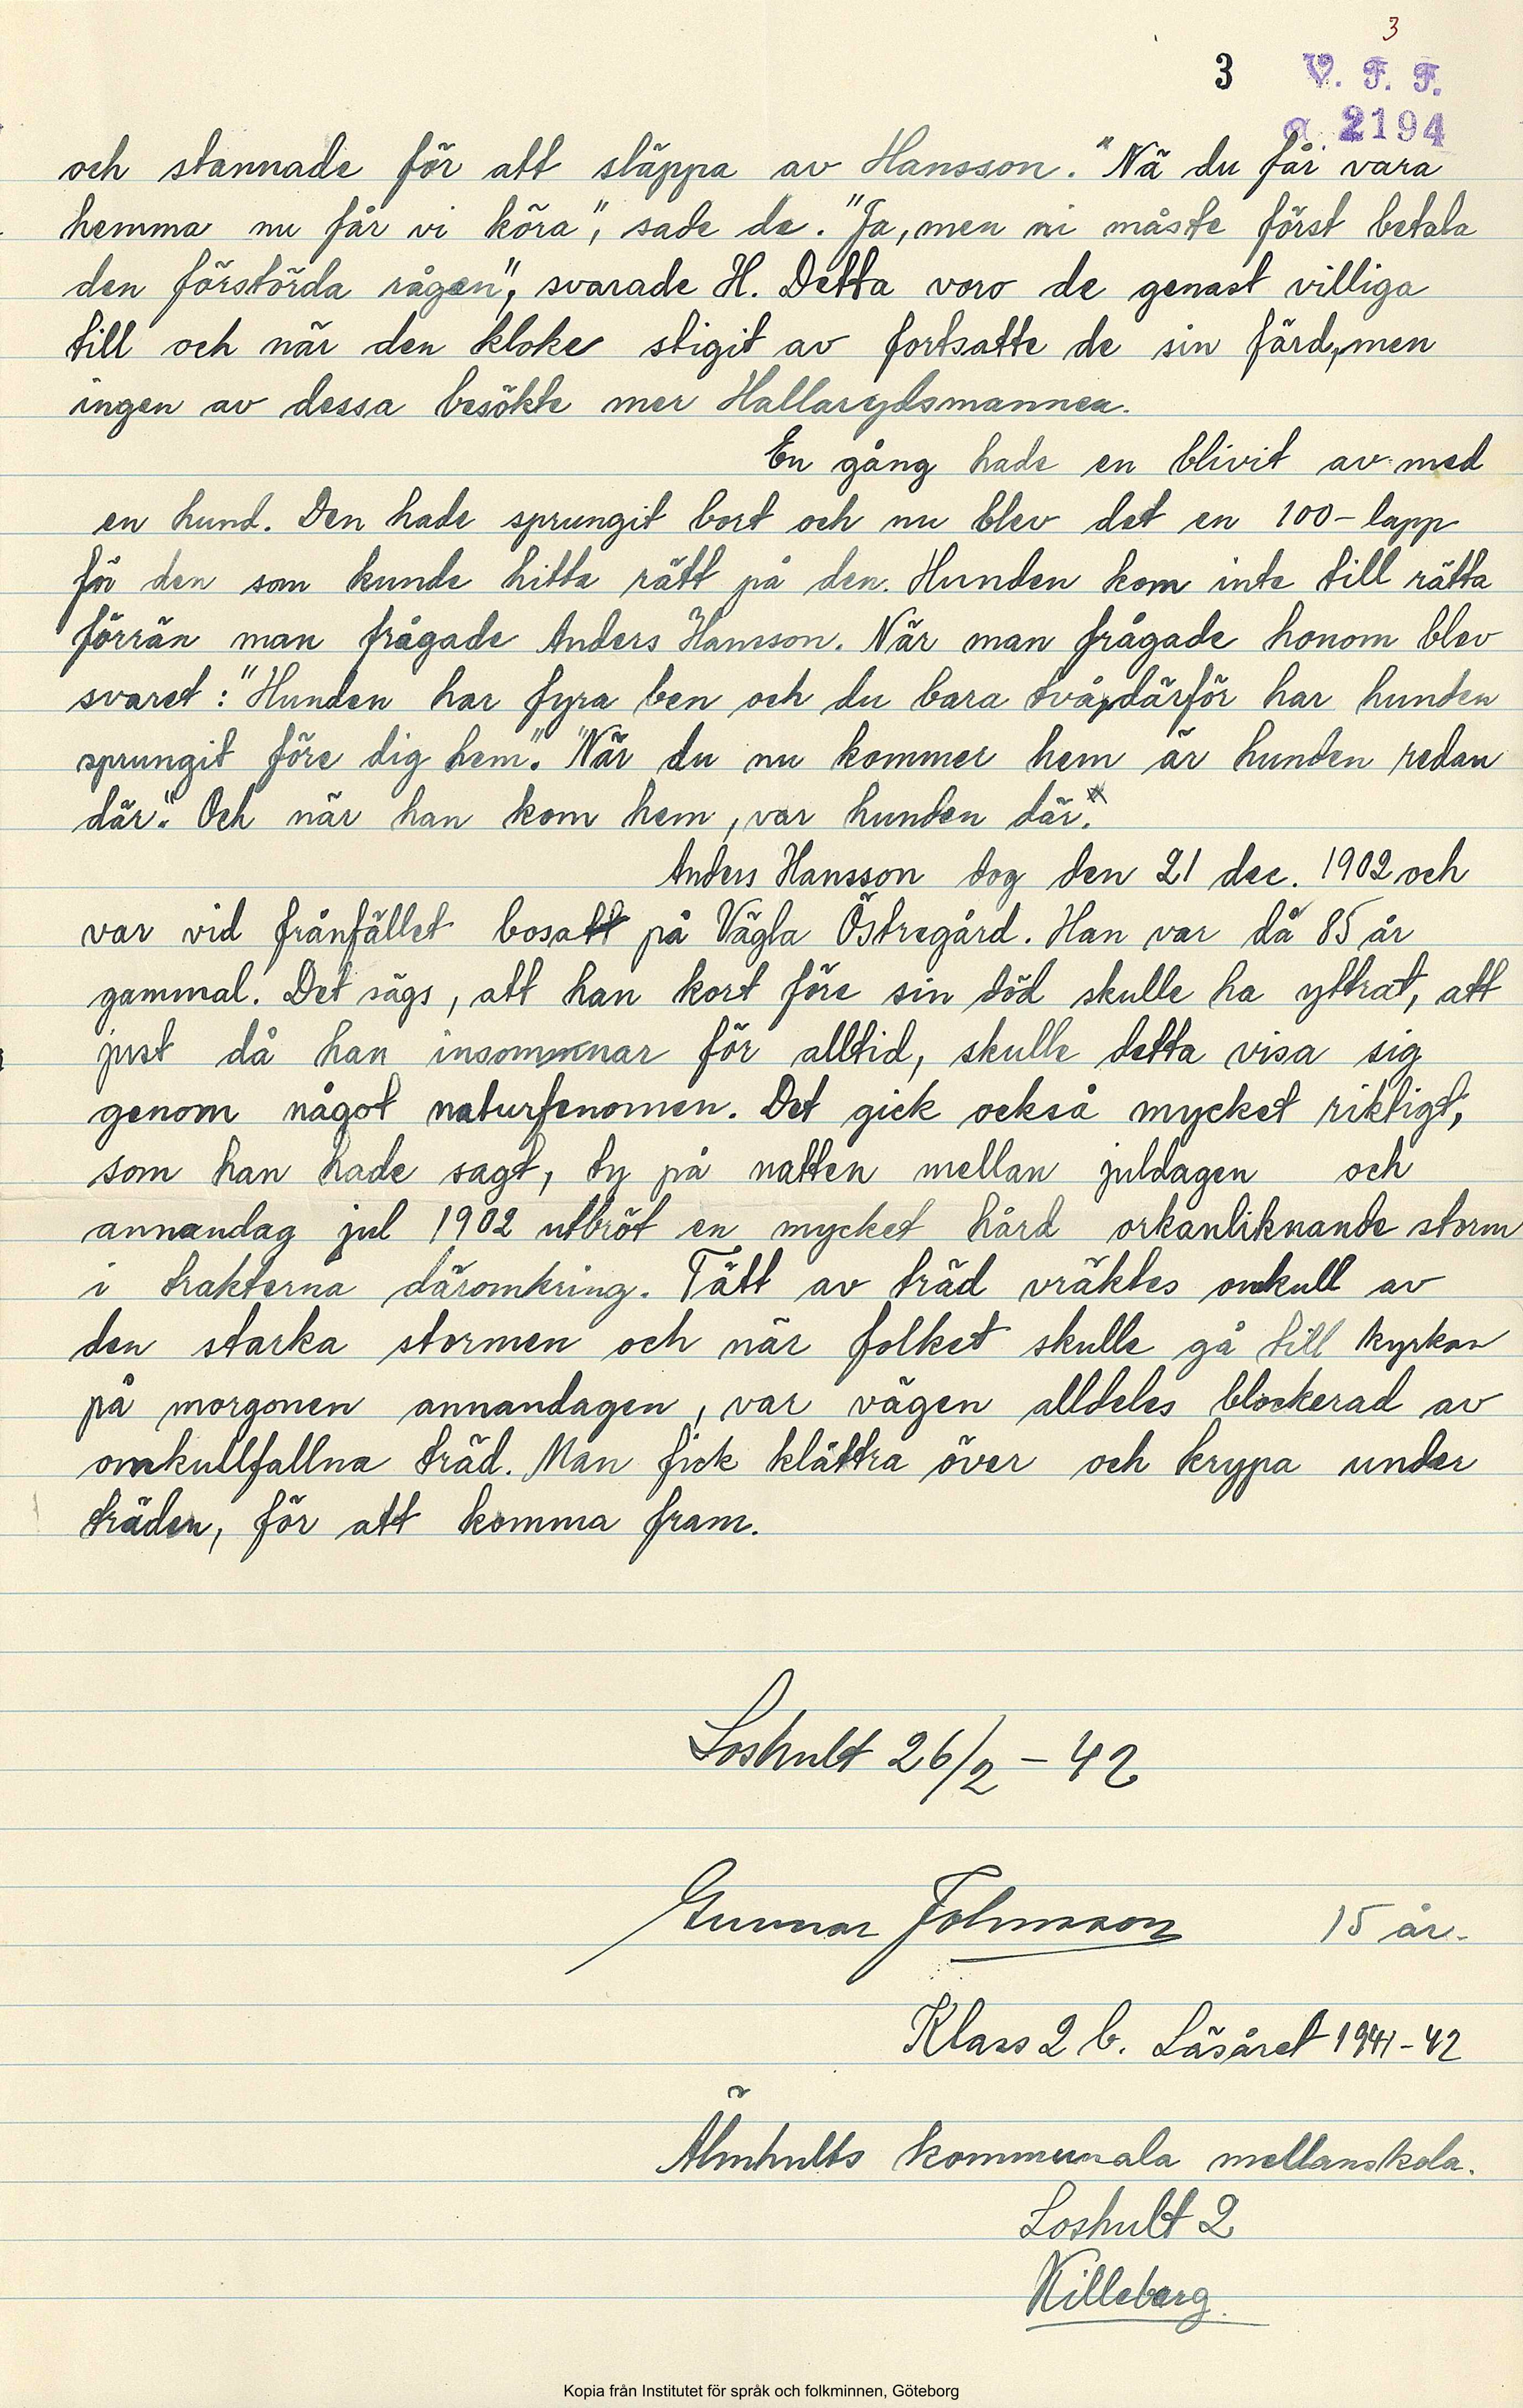 3
3 V. F. F.
a 2194
och stannade för att släppa av Hansson. "Nä du får vara
hemma nu får vi köra", sade de. "Ja, men ni måste först betala
den förstörda rågen", svarade H. Detta voro de genast villiga
till och när den kloke stigit av fortsatte de sin färd, men
ingen av dessa besökte mer Hallarydsmannen.
En gång hade en blivit av med
en hund. Den hade sprungit bort och nu blev det en 100-lapp
för den som kunde hitta rätt på den. Hunden kom inte till rätta
förrän man frågade Anders Hansson. När man frågade honom blev
svaret: "Hunden har fyra ben och du bara två, därför har hunden
sprungit före dig hem". "När du nu kommer hem är hunden redan
där". Och när han kom hem, var hunden där.
Anders Hansson dog den 21 dec. 1902 och
var vid frånfället bosatt på Vägla Östregård. Han var då 85 år
gammal. Det sägs, att han kort före sin död skulle ha yttrat, att
just då han insomnar för alltid, skulle detta visa sig
genom något naturfenomen. Det gick också mycket riktigt,
som han hade sagt, ty på natten mellan juldagen och
annandag jul 1902 utbröt en mycket hård orkanliknande storm
i trakterna däromkring. Tätt av träd vräktes omkull av
den starka stormen och när folket skulle gå till kyrkan
på morgonen annandagen, var vägen alldeles blockerad av
omkullfallna träd. Man fick klättra över och krypa under
träden, för att komma fram.
Loshult 26/2 - 42
Gunnar Johnsson 15 år.
Klass 2 b. Läsåret 1941-42
Älmhults kommunala mellanskola.
Loshult 2
Killeberg.
Kopia från Institutet för språk och folkminnen, Göteborg